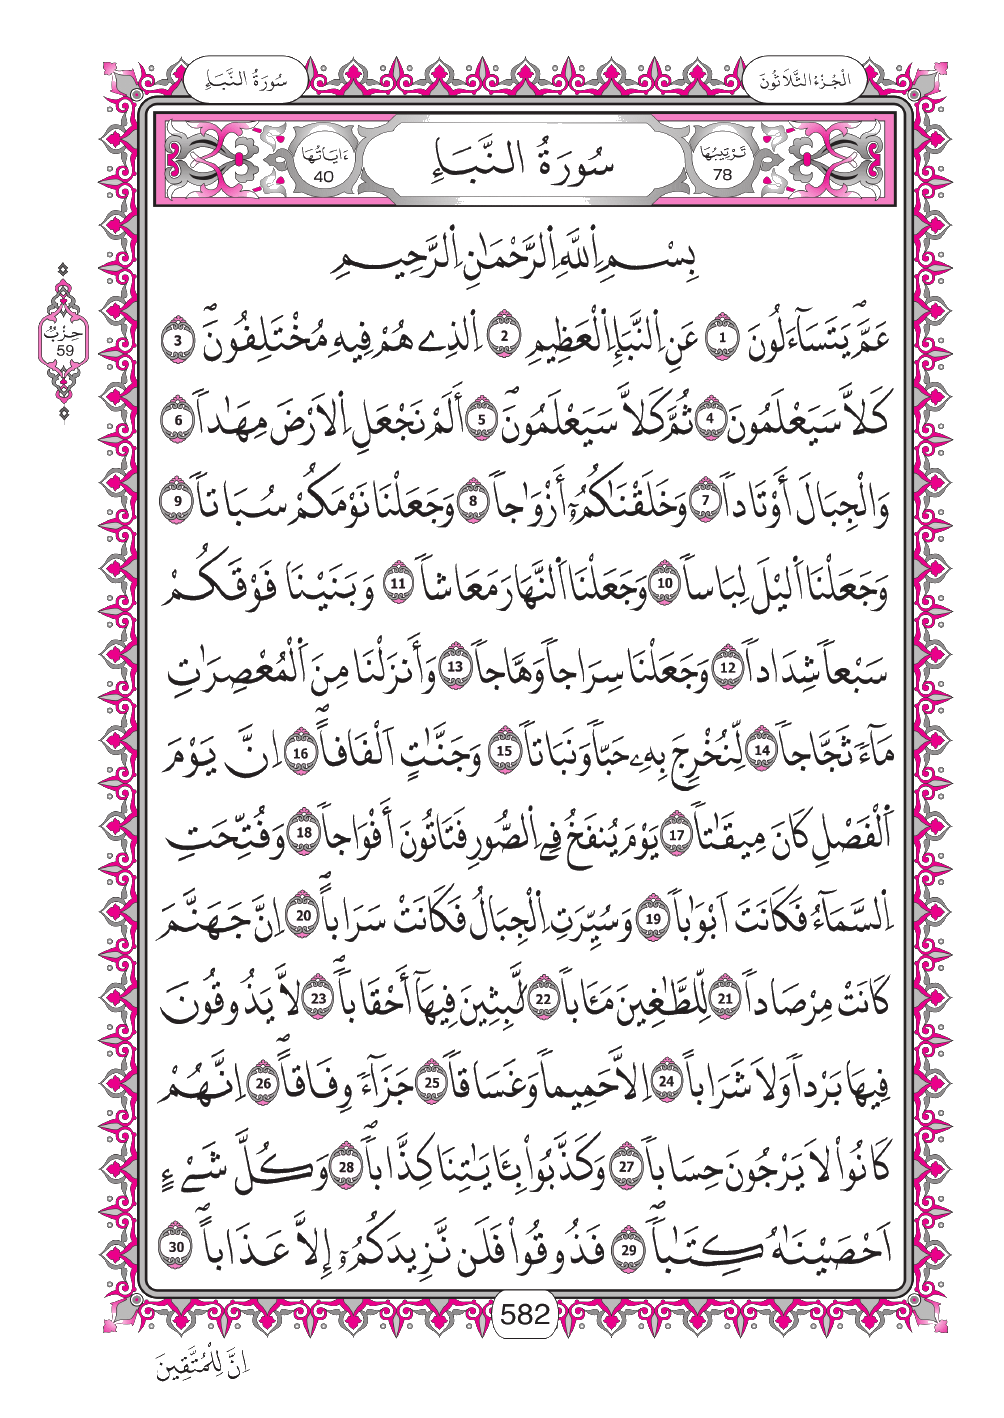 سُورَةُ النَّبَإِ
الْجُزْءُ الثَّلَاثُونَ
تَرْتِيبُهَا 78
سُورَةُ النَّبَإِ
ءَايَاتُهَا 40
بِسْمِ اِ۬للَّهِ اِ۬لرَّحْمَٰنِ اِ۬لرَّحِيمِ
عَمَّ يَتَسَآءَلُونَ 1 عَنِ اِ۬لنَّبَإِ اِ۬لْعَظِيمِ 2 اِ۬لذِے هُمْ فِيهِ مُخْتَلِفُونَۖ 3
حِزْبٌ 59
كَلاَّ سَيَعْلَمُونَ 4 ثُمَّ كَلاَّ سَيَعْلَمُونَۖ 5 أَلَمْ نَجْعَلِ اِ۬لَارْضَ مِهَٰداٗ 6
وَالْجِبَالَ أَوْتَاداٗ 7 وَخَلَقْنَٰكُمُۥٓ أَزْوَٰجاٗ 8 وَجَعَلْنَا نَوْمَكُمْ سُبَاتاٗ 9
وَجَعَلْنَا اَ۬ليْلَ لِبَاساٗ 10 وَجَعَلْنَا اَ۬لنَّهَارَ مَعَاشاٗ 11 وَبَنَيْنَا فَوْقَكُمْ
سَبْعاٗ شِدَاداٗ 12 وَجَعَلْنَا سِرَاجاٗ وَهَّاجاٗ 13 وَأَنزَلْنَا مِنَ اَ۬لْمُعْصِرَٰتِ
مَآءٗ ثَجَّاجاٗ 14 لِّنُخْرِجَ بِهِۦ حَبّاٗ وَنَبَاتاٗ 15 وَجَنَّٰتٍ اَلْفَافاًۖ 16 اِنَّ يَوْمَ
اَ۬لْفَصْلِ كَانَ مِيقَٰتاٗ 17 يَوْمَ يُنفَخُ فِے اِ۬لصُّورِ فَتَاتُونَ أَفْوَاجاٗ 18 وَفُتِّحَتِ
اِ۬لسَّمَآءُ فَكَانَتَ اَبْوَٰباٗ 19 وَسُيِّرَتِ اِ۬لْجِبَالُ فَكَانَتْ سَرَاباًۖ 20 اِنَّ جَهَنَّمَ
كَانَتْ مِرْصَاداٗ 21 لِّلطَّٰغِينَ مَـَٔاباٗ 22 لَّٰبِثِينَ فِيهَآ أَحْقَاباٗۖ 23 لاَّ يَذُوقُونَ
فِيهَا بَرْداٗ وَلَا شَرَاباً 24 اِلاَّ حَمِيماٗ وَغَسَاقاٗ 25 جَزَآءٗ وِفَاقاًۖ 26 اِنَّهُمْ
كَانُواْ لَا يَرْجُونَ حِسَاباٗ 27 وَكَذَّبُواْ بِـَٔايَٰتِنَا كِذَّاباٗۖ 28 وَكُلَّ شَےْءٍ
اَحْصَيْنَٰهُ كِتَٰباٗۖ 29 فَذُوقُواْ فَلَن نَّزِيدَكُمُۥٓ إِلاَّ عَذَاباًۖ 30
582
اِنَّ لِلْمُتَّقِينَ